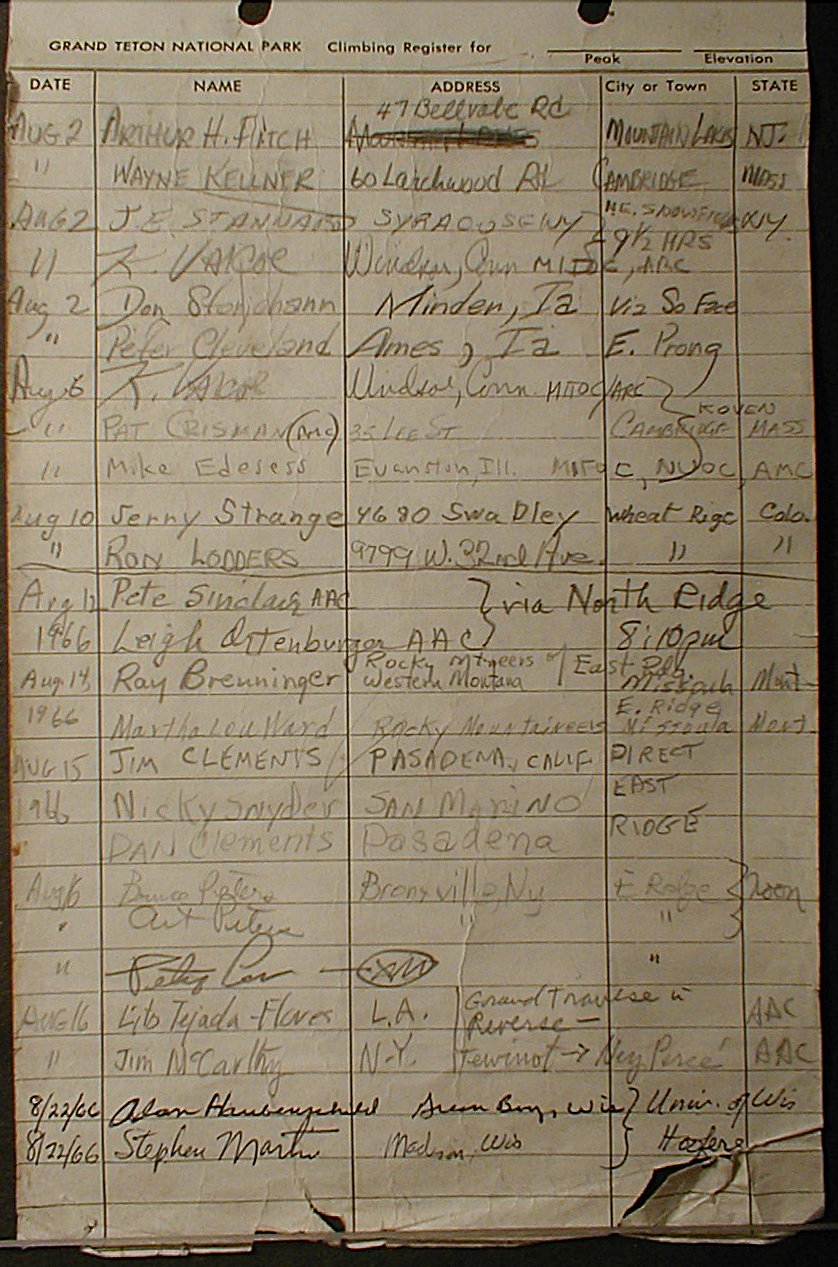 GRAND TETON NATIONAL PARK Climbing Register for
Peak Elevation
DATE NAME ADDRESS City or Town STATE
47 Bellvale Rd
AUG 2 ARTHUR H. FITCH MOUNTAIN LAKES NJ.
" WAYNE KELLNER 60 Larchwood Rd CAMBRIDGE MASS
AUG 2 J.E. STANNARD SYRACUSE NY N.E. SNOWFIELDS
9 1/2 HRS
" K. Windsor, Conn MITOC, AAC
Aug 2 Don Storjohann Minden, Ia Via So Face
" Peter Cleveland Ames, Ia E. Prong
Aug 6 K. Windsor, Conn. MITOC/AAC
KOVEN
" PAT CRISMAN (AMC) 35 LEE ST CAMBRIDGE MASS
" Mike Edesess Evanston, Ill. MITOC, NUOC, AMC
Aug 10 Jerry Strange 4680 Swadley Wheat Rigc Colo.
" RON LODDERS 9799 W. 32nd Ave. " "
Aug 12 Pete Sinclair AAC via North Ridge
1966 Leigh Ortenburger AAC 8:10pm
Rocky Mtneers of East Rdg.
Aug. 14, Ray Breuninger Western Montana Missoula Mont
E. Ridge
1966 Martha Lou Ward Rocky Mountaineers Missoula Mont.
AUG 15 JIM CLEMENTS PASADENA, CALIF. DIRECT
1966 Nicky Snyder SAN MARINO EAST
DAN Clements Pasadena RIDGE
Aug 16 Bruce Peters Bronxville, Ny E Ridge Noon
" Art Peters " "
" "
Grand Traverse in
AUG 16 Lito Tejada-Flores L.A. Reverse — AAC
" Jim McCarthy N.Y. Tewinot → Nez Perce' AAC
8/22/66 Alan Green Bay, Wis Univ. of Wis
8/22/66 Stephen Martin Madison, Wis Hoofers